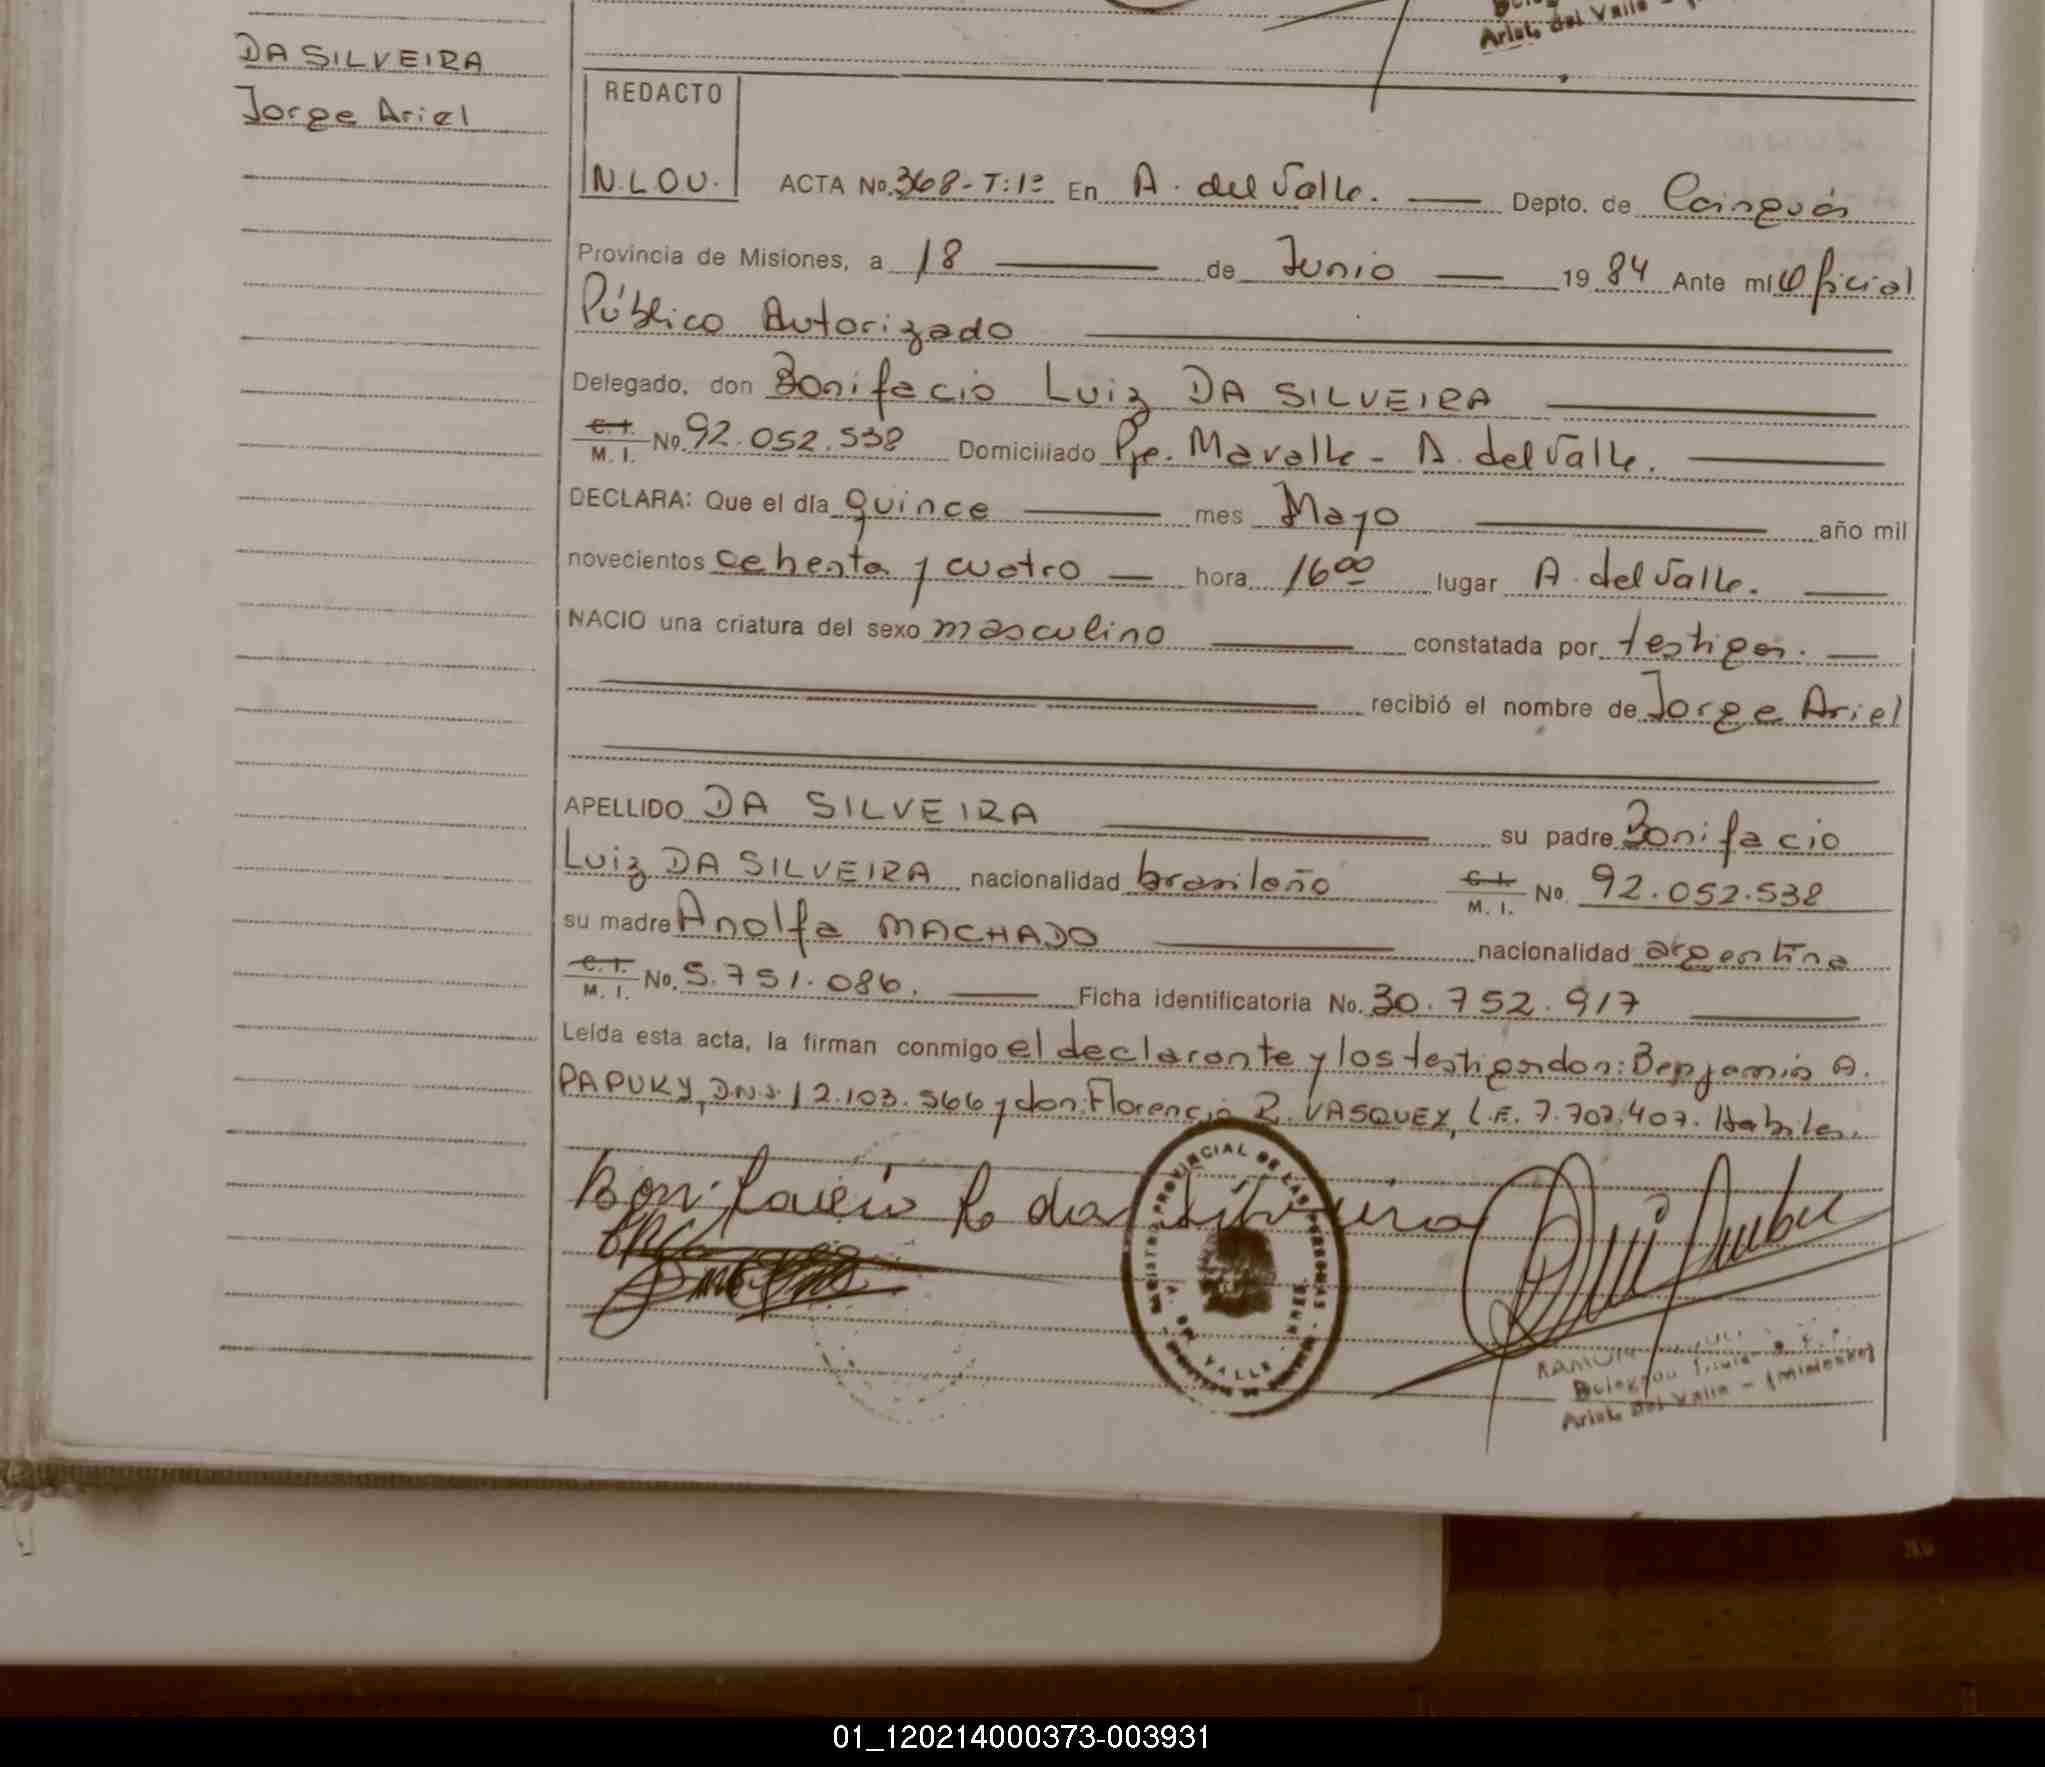 Arist. del Valle -
DA SILVEIRA
Jorge Ariel
REDACTO
N.L.OU. ACTA No. 368-T:1º En A. del Valle. Depto. de Cainguás
Provincia de Misiones, a 18 de Junio 1984 Ante mí Oficial
Público Autorizado
Delegado, don Bonifacio Luiz DA SILVEIRA
C.I. M. I. No. 92.052.538 Domiciliado Pje. Mavalle - A. del Valle.
DECLARA: Que el día quince mes Mayo año mil
novecientos ochenta y cuatro hora 16⁰⁰ lugar A. del Valle.
NACIO una criatura del sexo masculino constatada por testigos.
recibió el nombre de Jorge Ariel
APELLIDO DA SILVEIRA su padre Bonifacio
Luiz DA SILVEIRA nacionalidad brasileño C.I. M. I. No. 92.052.538
su madre Anolfa MACHADO nacionalidad argentina
C.I. M. I. No. 5.751.086. Ficha identificatoria No. 30.752.917
Leída esta acta, la firman conmigo el declarante y los testigos don: Benjamín A.
PAPUKY, D.N.I. 12.103.566 y don Florencio R. VASQUEZ, L.E. 7.702.407. Hábiles.
Bonifacio L da Silveira
REGISTRO PROVINCIAL DE LAS PERSONAS
DEL VALLE
Delegado Titular
Arist. del Valle - (Misiones)
01_120214000373-003931